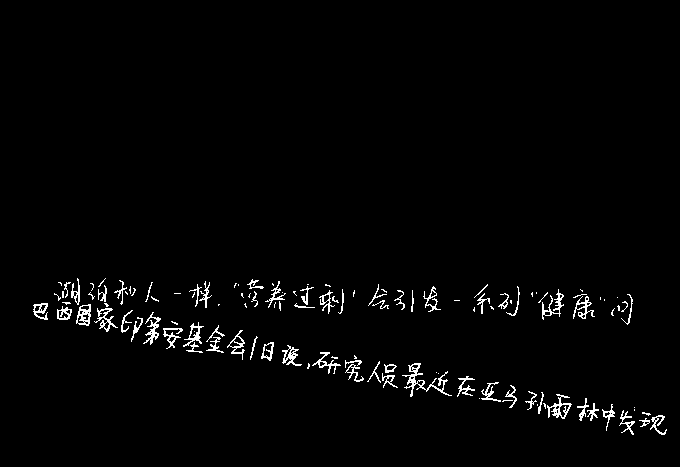 湖泊和人一样，“营养过剩”会引发一系列“健康”问
巴西国家印第安基金会1日说，研究人员最近在亚马孙雨林中发现